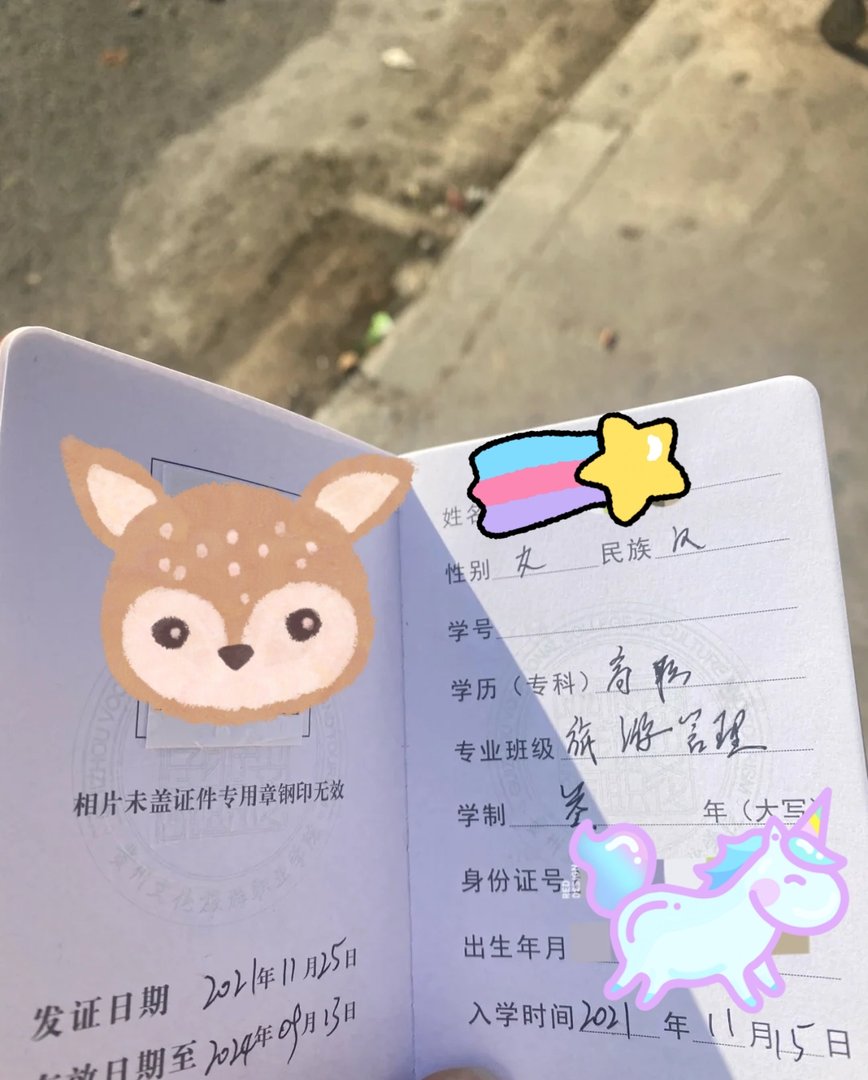 相片未盖证件专用章钢印无效
贵州文化旅游职业学院
发证日期 2021年11月25日
有效日期至 2024年09月13日
姓名
性别 女 民族 汉
学号
学历（专科）高职
专业班级 旅游管理
学制 叁 年（大写）
身份证号
出生年月
入学时间 2021 年 11 月 15 日
RED DESIGN